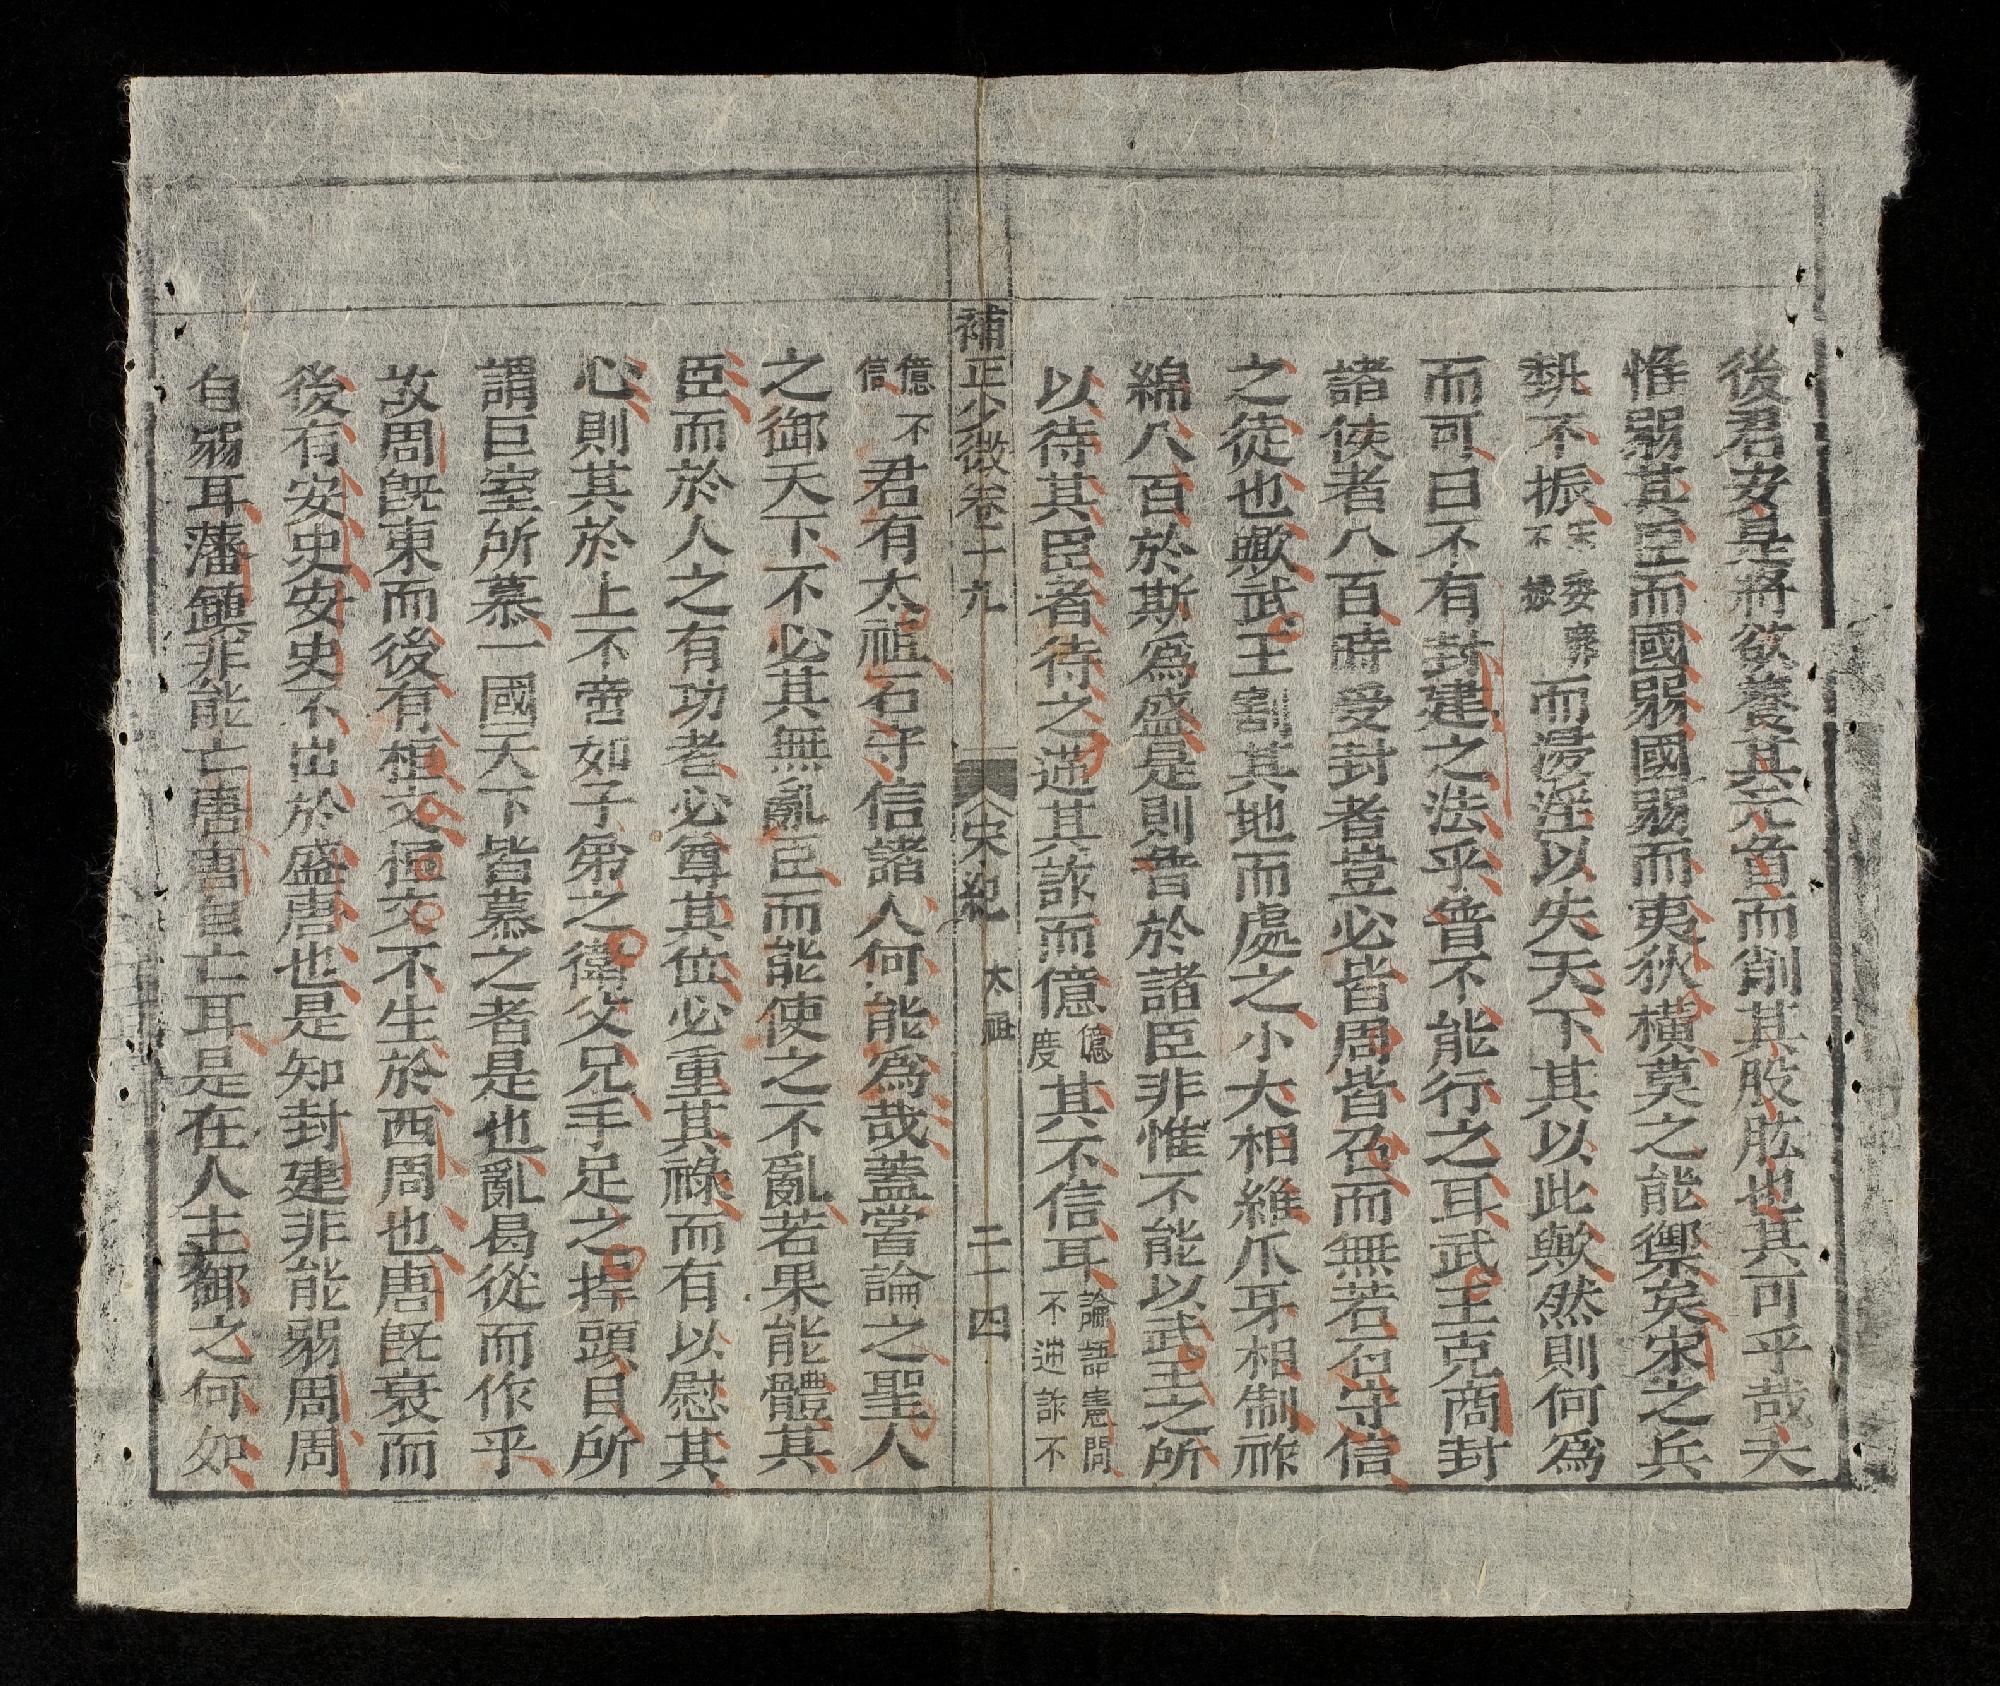 後君安是將欲養其元首而削其股肱也其可乎哉夫
惟弱其臣而國弱國弱而夷狄橫莫之能禦矣宋之兵
勢不振宋委靡不振而浸淫以失天下其以此歟然則何為
而可曰不有封建之法乎昔不能行之耳武王克商封
諸侯者八百時受封者豈必皆周皆召而無若石守信
之徒也歟武王割其地而處之小大相維爪牙相制祚
綿八百於斯為盛是則昔於諸臣非惟不能以武王之所
以待其臣者待之逆其詐而億億度其不信耳論語憲問不逆詐不
補正少微卷十九 宋紀 太祖 二十四
億不信君有太祖石守信諸人何能為哉蓋嘗論之聖人
之御天下不必其無亂臣而能使之不亂若果能體其
臣而於人之有功者必尊其位必重其祿而有以慰其
心則其於上不啻如子弟之衛父兄手足之捍頭目所
謂巨室所慕一國天下皆慕之者是也亂曷從而作乎
故周旣東而後有桓文桓文不生於西周也唐旣衰而
後有安史安史不出於盛唐也是知封建非能弱周周
自弱耳藩鎭非能亡唐唐自亡耳是在人主御之何如